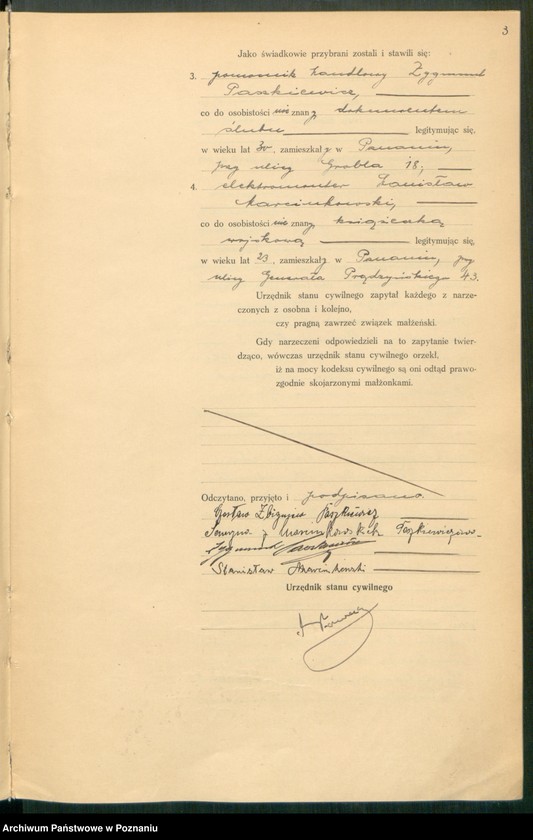 3
Jako świadkowie przybrani zostali i stawili się:
3. pomocnik handlowy Zygmunt
Paszkiewicz,
co do osobistości nie znany dokumentem
ślubu legitymując się,
w wieku lat 30, zamieszkały w Poznaniu,
przy ulicy Grobla 18;
4. elektromonter Stanisław
Marcinkowski,
co do osobistości nie znany książeczką
wojskową legitymując się,
w wieku lat 23, zamieszkały w Poznaniu, przy
ulicy Generała Prądzyńskiego 43.
Urzędnik stanu cywilnego zapytał każdego z narze-
czonych z osobna i kolejno,
czy pragną zawrzeć związek małżeński.
Gdy narzeczeni odpowiedzieli na to zapytanie twier-
dząco, wówczas urzędnik stanu cywilnego orzekł,
iż na mocy kodeksu cywilnego są oni odtąd prawo-
zgodnie skojarzonymi małżonkami.
Odczytano, przyjęto i podpisano.
Zbigniew Paszkiewicz
z Marcinkowskich Paszkiewiczowa
Zygmunt Paszkiewicz
Stanisław Marcinkowski
Urzędnik stanu cywilnego
Archiwum Państwowe w Poznaniu